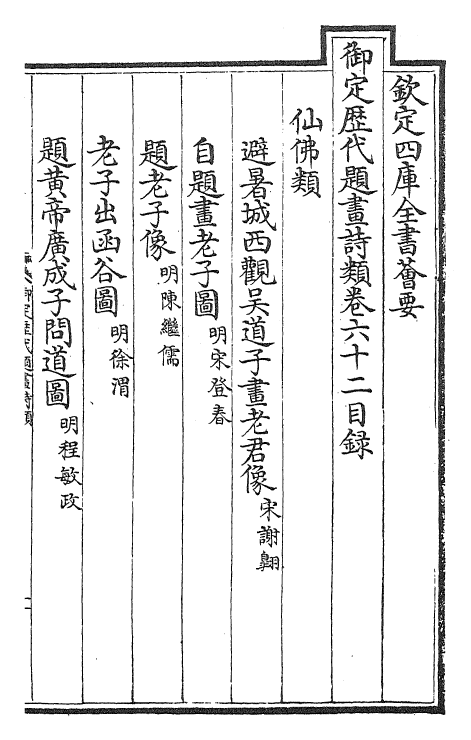 欽定四庫全書薈要
御定歴代題畫詩類卷六十二目録
仙佛類
避暑城西觀吴道子畫老君像 宋謝翺
自題畫老子圖 明宋登春
題老子像 明陳繼儒
老子出函谷圖 明徐渭
題黄帝廣成子問道圖 明程敏政
御定歴代題畫詩類